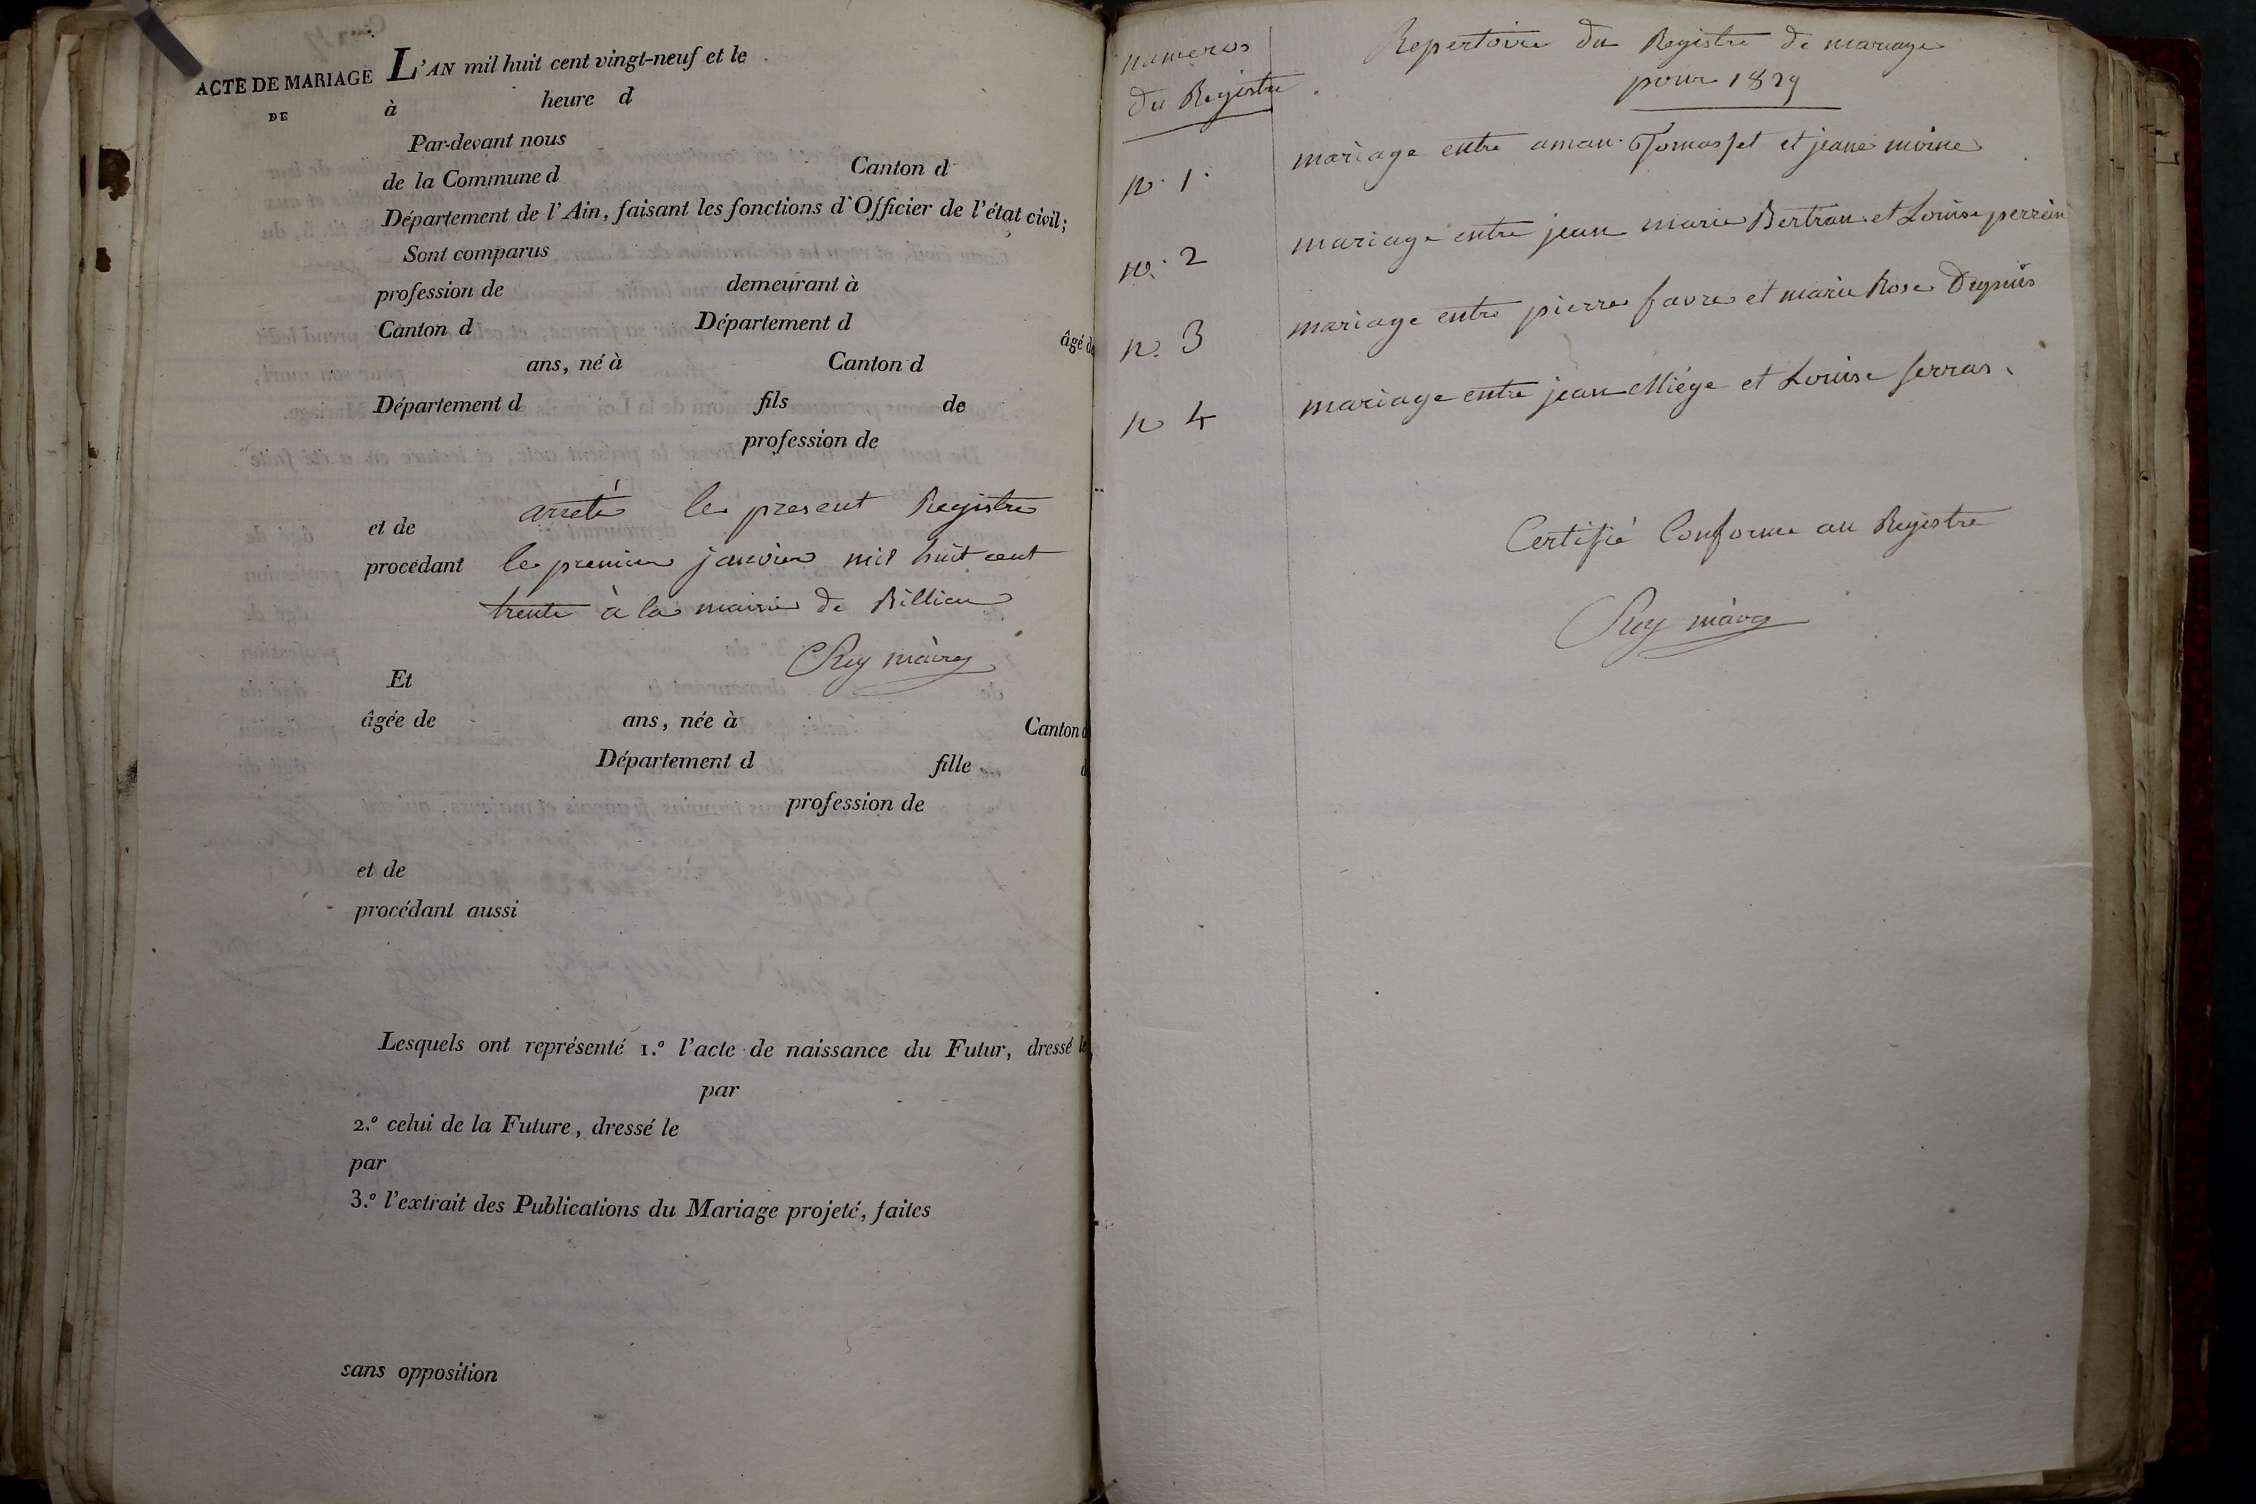 ACTE DE MARIAGE
DE
L'AN mil huit cent vingt-neuf et le
à heure d
Par-devant nous
de la Commune d Canton d
Département de l'Ain, faisant les fonctions d'Officier de l'état civil;
Sont comparus
profession de demeurant à
Canton d Département d âgé de
ans, né à Canton d
Département d fils de
profession de
et de arreté le present Registre
procédant le premier janvier mil huit cent
trente à la mairie de Billieu
Rey maire
Et
âgée de ans, née à Canton d
Département d fille d
profession de
et de
procédant aussi
Lesquels ont représenté 1.º l'acte de naissance du Futur, dressé le
par
2.º celui de la Future, dressé le
par
3.º l'extrait des Publications du Mariage projeté, faites
sans opposition
numeros
du Registre
Repertoire du Registre de mariage
pour 1829
n. 1. mariage entre aman Tomasset et jeane moine
n. 2 mariage entre jean marie Bertran et Louise perrin
n. 3 mariage entre pierre favre et marie Rose Dupuis
n 4 mariage entre jean Miége et Louise serras
Certifié Conforme au Registre
Rey maire